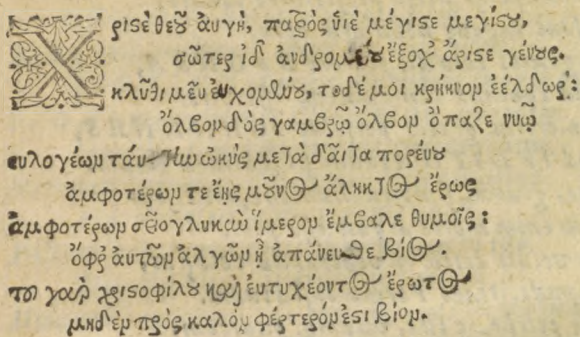 Χριστὲ θεοῦ ἀυγὴ, πατρὸς ὑιὲ μέγιστε μεγίστου,
σῶτερ ἰδ᾽ ἀνδρομέου ἔξοχ᾽ ἄριστε γένους.
κλῦθι μεῦ ἐυχομένου, τοδέ μοι κρήηνον ἐέλδωρ:
ὄλβον δὸς γαμβρῷ ὄλβον ὄπαζε νυῷ
ευλογέων τάυτην ὠκὺς μετὰ δᾶιτα πορέυου
ἀμφοτέρων τε ἕης μοῦνος ἄληκτος ἔρως
ἀμφοτέρων γλυκὺν ἵμερον ἔμβαλε θυμοῖς:
ὄφρ᾽ ἀυτῶν ἀλγῶν ᾖ ἀπάνευθε βίος.
του γὰρ χριστοφίλου καὶ ευτυχέοντος ἔρωτος
μηδὲν πρὸς καλὸν φέρτερόν ἐστι βίον.